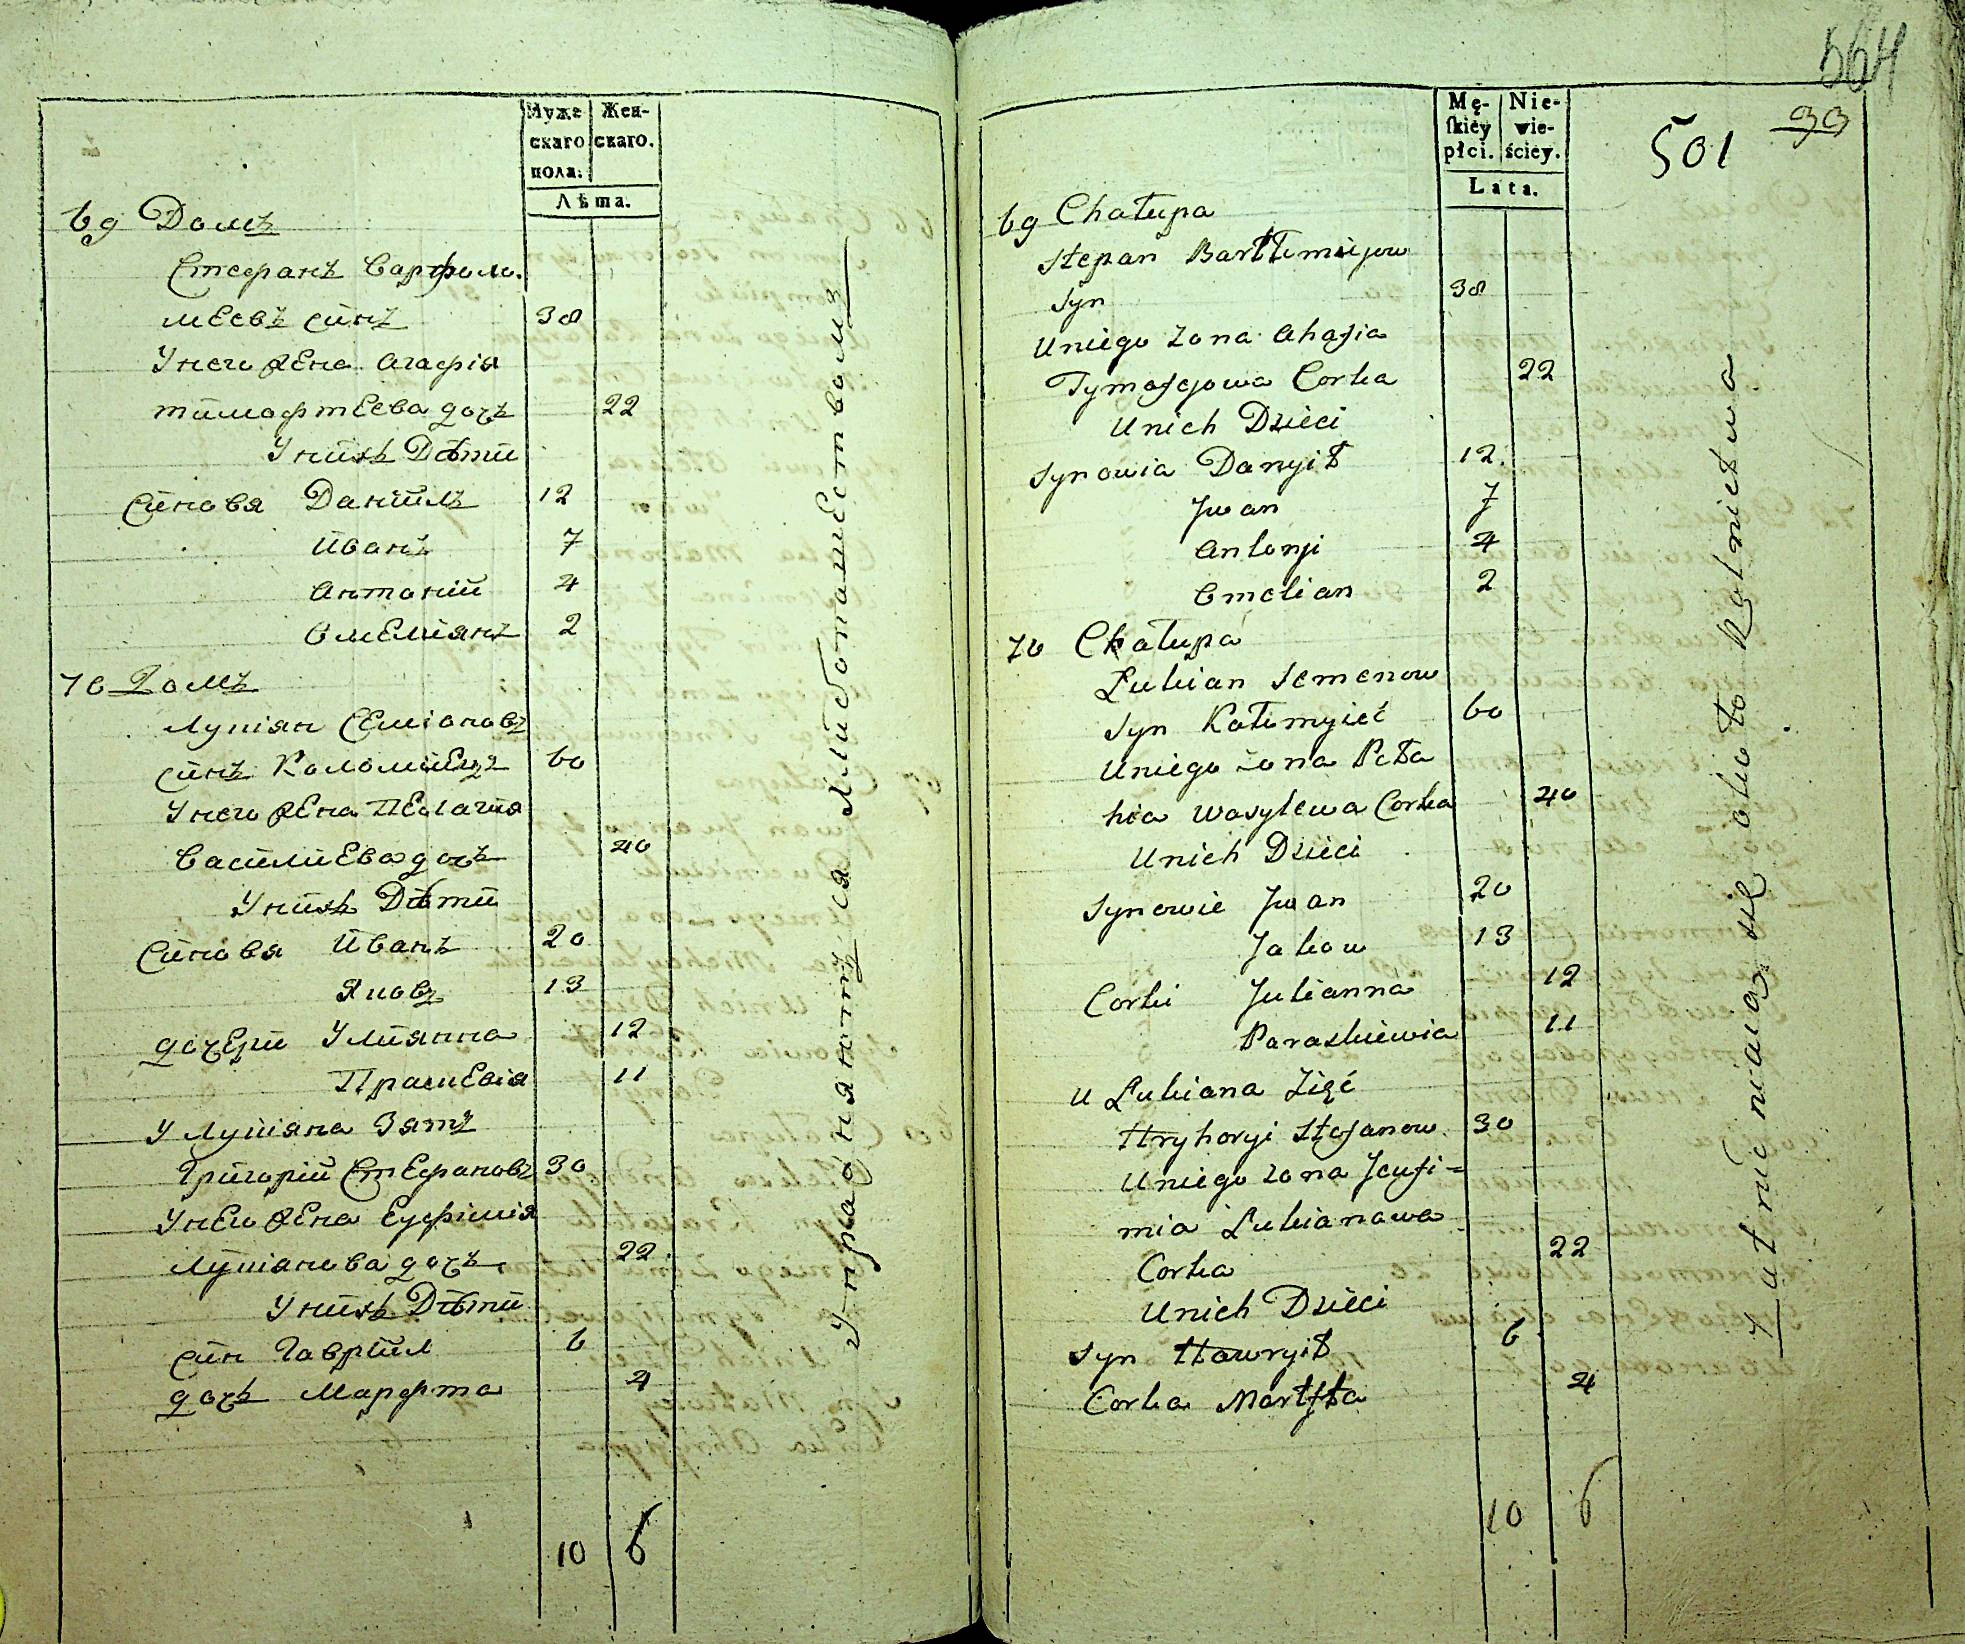 Муже
скаго
пола.
Жен-
скаго.
Лѣта.
69 Домъ
Стефанъ Варфоло.
меевъ синъ 38
Унего жена Агафія
тимофтеева дочъ 22
Унихъ Дѣти
Синовя Даниилъ 12
Иванъ 7
Антоний 4
Омелиянъ 2
70 Домъ
Лукіян Семіоновъ
синъ Коломиецъ 60
Унего жена Пелагия
Василиева дочъ 40
Унихъ Дѣти
Синовя Иванъ 20
Яковъ 13
дочери Улиянна 12
Праскевія 11
У Лукіяна Зятъ
Григорій Стефановъ 30
Унего жена Еуфимія
Лукіянова дочъ 22
Унихъ Дѣти
син Гавриил 6
дочъ Марфта 4
10 6
Упражняютъ ся Хлибопашеством
564
39
501
Mę-
skiéy
płci.
Nie-
wie-
ściey.
Lata.
69 Chałupa
Stepan Bartłomiejow
Syn 38
Uniego zona Ahafia
Tymofejowa Corka 22
Unich Dzieci
Synowia Danyił 12
Jwan 7
Antonji 4
Omelian 2
70 Chałupa
Lukian Semenow
Syn Kołomyieć 60
Uniego żona Peła
hia Wasylewa Corka 40
Unich Dzieci
Synowie Jwan 20
Jakow 13
Corki Julianna 12
Paraskiewia 11
U Lukiana Zięć
Hryhoryi Stefanow 30
Uniego zona Jeufi=
mia Lukianowa
Corka 22
Unich Dzieci
Syn Hawryił 6
Corka Marfta 4
10 6
Zatrudniaią się około Rolnictwa